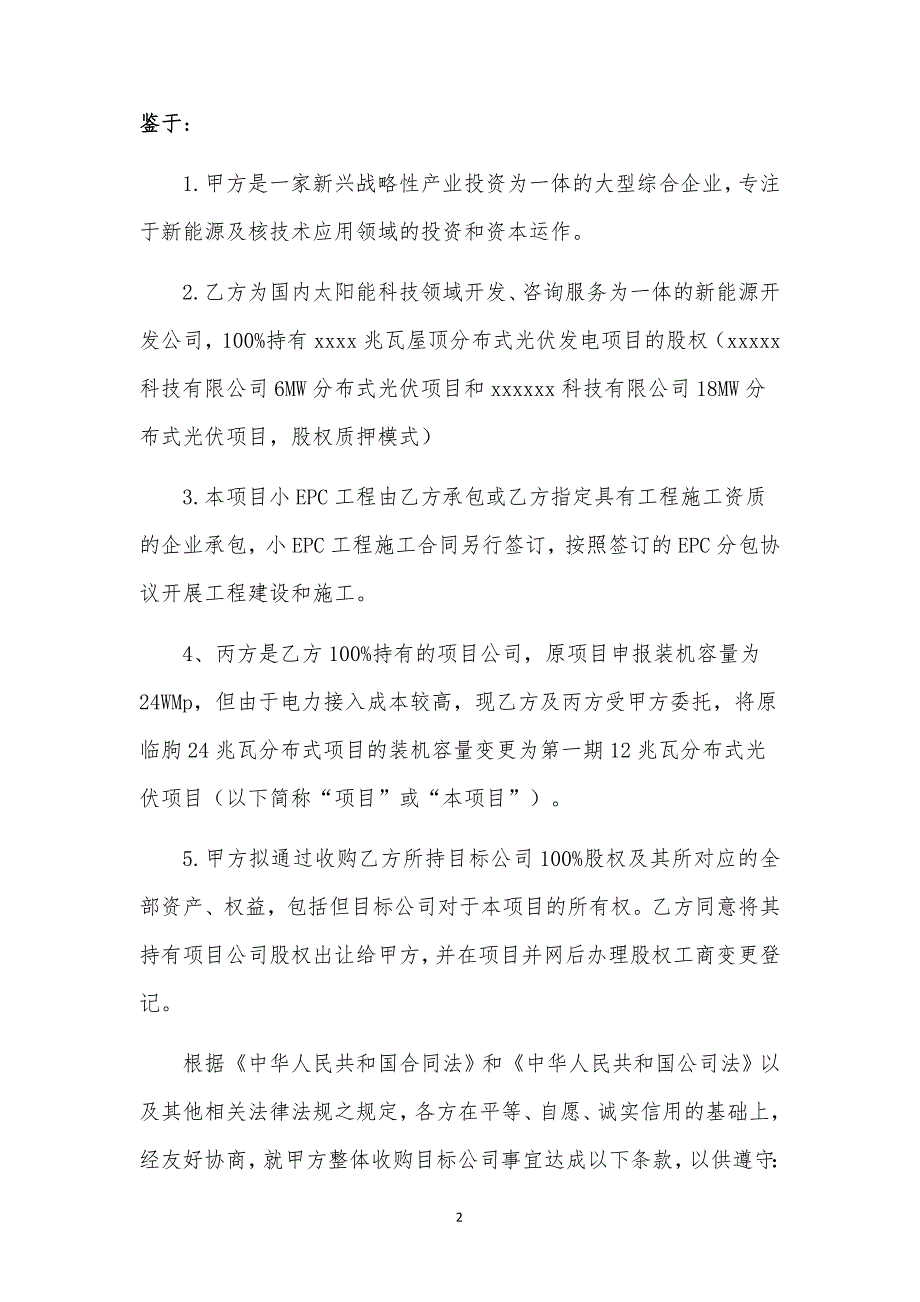 鉴于：
1.甲方是一家新兴战略性产业投资为一体的大型综合企业，专注
于新能源及核技术应用领域的投资和资本运作。
2.乙方为国内太阳能科技领域开发、咨询服务为一体的新能源开
发公司，100%持有 xxxx 兆瓦屋顶分布式光伏发电项目的股权（xxxxx
科技有限公司 6MW 分布式光伏项目和 xxxxxx 科技有限公司 18MW 分
布式光伏项目，股权质押模式）
3.本项目小 EPC 工程由乙方承包或乙方指定具有工程施工资质
的企业承包，小 EPC 工程施工合同另行签订，按照签订的 EPC 分包协
议开展工程建设和施工。
4、丙方是乙方 100%持有的项目公司，原项目申报装机容量为
24WMp，但由于电力接入成本较高，现乙方及丙方受甲方委托，将原
临朐 24 兆瓦分布式项目的装机容量变更为第一期 12 兆瓦分布式光
伏项目（以下简称“项目”或“本项目”）。
5.甲方拟通过收购乙方所持目标公司 100%股权及其所对应的全
部资产、权益，包括但目标公司对于本项目的所有权。乙方同意将其
持有项目公司股权出让给甲方，并在项目并网后办理股权工商变更登
记。
根据《中华人民共和国合同法》和《中华人民共和国公司法》以
及其他相关法律法规之规定，各方在平等、自愿、诚实信用的基础上，
经友好协商，就甲方整体收购目标公司事宜达成以下条款，以供遵守：
2